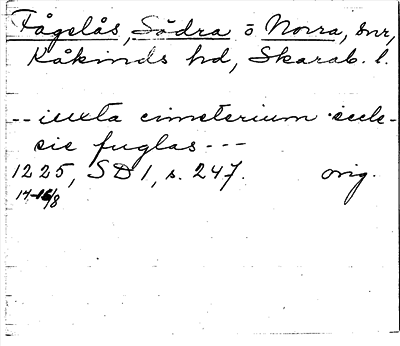 Fågelås, Södra o Norra, snr,
Kåkinds hd, Skarab. l.
-- iuxta cimeterium ·eccle-
sie fuglas ---
1225, SD 1, s. 247. orig.
14-16/8